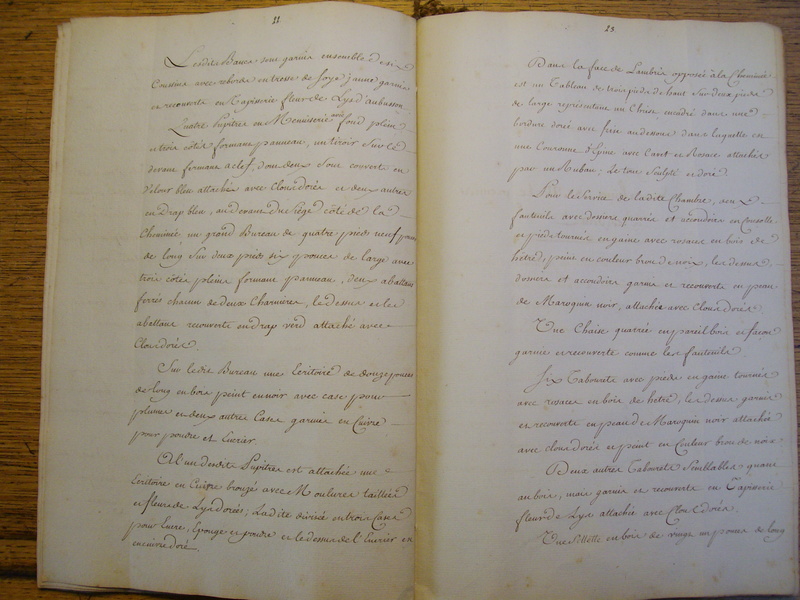 22
Lesdits Bancs sont garnis ensemble de six
Coussins avec rebords en tresse de soye jaune garnis
et recouverts en Tapisserie fleur de Lys d'aubusson.
Quatre Pupitres en Menuiserie avec fond plein
et trois côtés formant panneaux, un tiroir sur le
devant fermant a clef, dont deux sont couverts en
Velour bleu attaché avec Clous dorés et deux autres
en Drap bleu, au devant du Siège côté de la
Cheminée un grand Bureau de quatre pieds neuf pouces
de long sur deux pieds six pouces de large avec
trois côtés pleins formant panneaux, deux abattans
ferrés chacun de deux Charnières, le dessus et les
abattans recouverts en drap verd attaché avec
Clous dorés.
Sur le dit Bureau une Ecritoire de douze pouces
de long en bois peint en noir avec case pour
plume et deux autres Cases garnies en Cuivre
pour poudre et Encrier.
A l'un desdits Pupitres est attachée une
Ecritoire en Cuivre bronzé avec Moulures taillées
et fleurs de Lys dorées; Ladite divisée en trois Cases
pour Encre, Eponge et poudre et le dessus de l'Encrier en
en cuivre doré.
23
Dans la face de Lambris opposée à la Cheminée
est un Tableau de trois pieds de haut sur deux pieds
de large représentant un Christ encadré dans une
bordure doré avec frise au dessous dans laquelle est
une Couronne d'Epine avec Canet et Rosace attachés
par un Ruban; Le tout Sculpté et doré.
Pour le Service de la dite Chambre, deux
fauteuils avec dossiers quarrés et accoudoirs en Consolle
et pieds tournés en gaine avec rosaces en bois de
hêtre, peint en couleur bois de noix, les dessus,
dossiers et accoudoirs garnis et recouverts en peau
de Maroquin noir, attachés avec Clous dorés.
Une Chaise quarrée en pareil bois et façon
garnie et recouverte comme les fauteuils.
Six Tabourets avec pieds en gaine tournés
avec rosaces en bois de hetre, les dessus garnis
et recouverts en peau de Maroquin noir attachés
avec clous dorés et peint en Couleur bois de noix.
Deux autres Tabourets Semblables quant
au bois, mais garnis et recouverts en Tapisserie
fleur de Lys attachés avec Clous dorés.
Une Sellette en bois de vingt un pouces de long